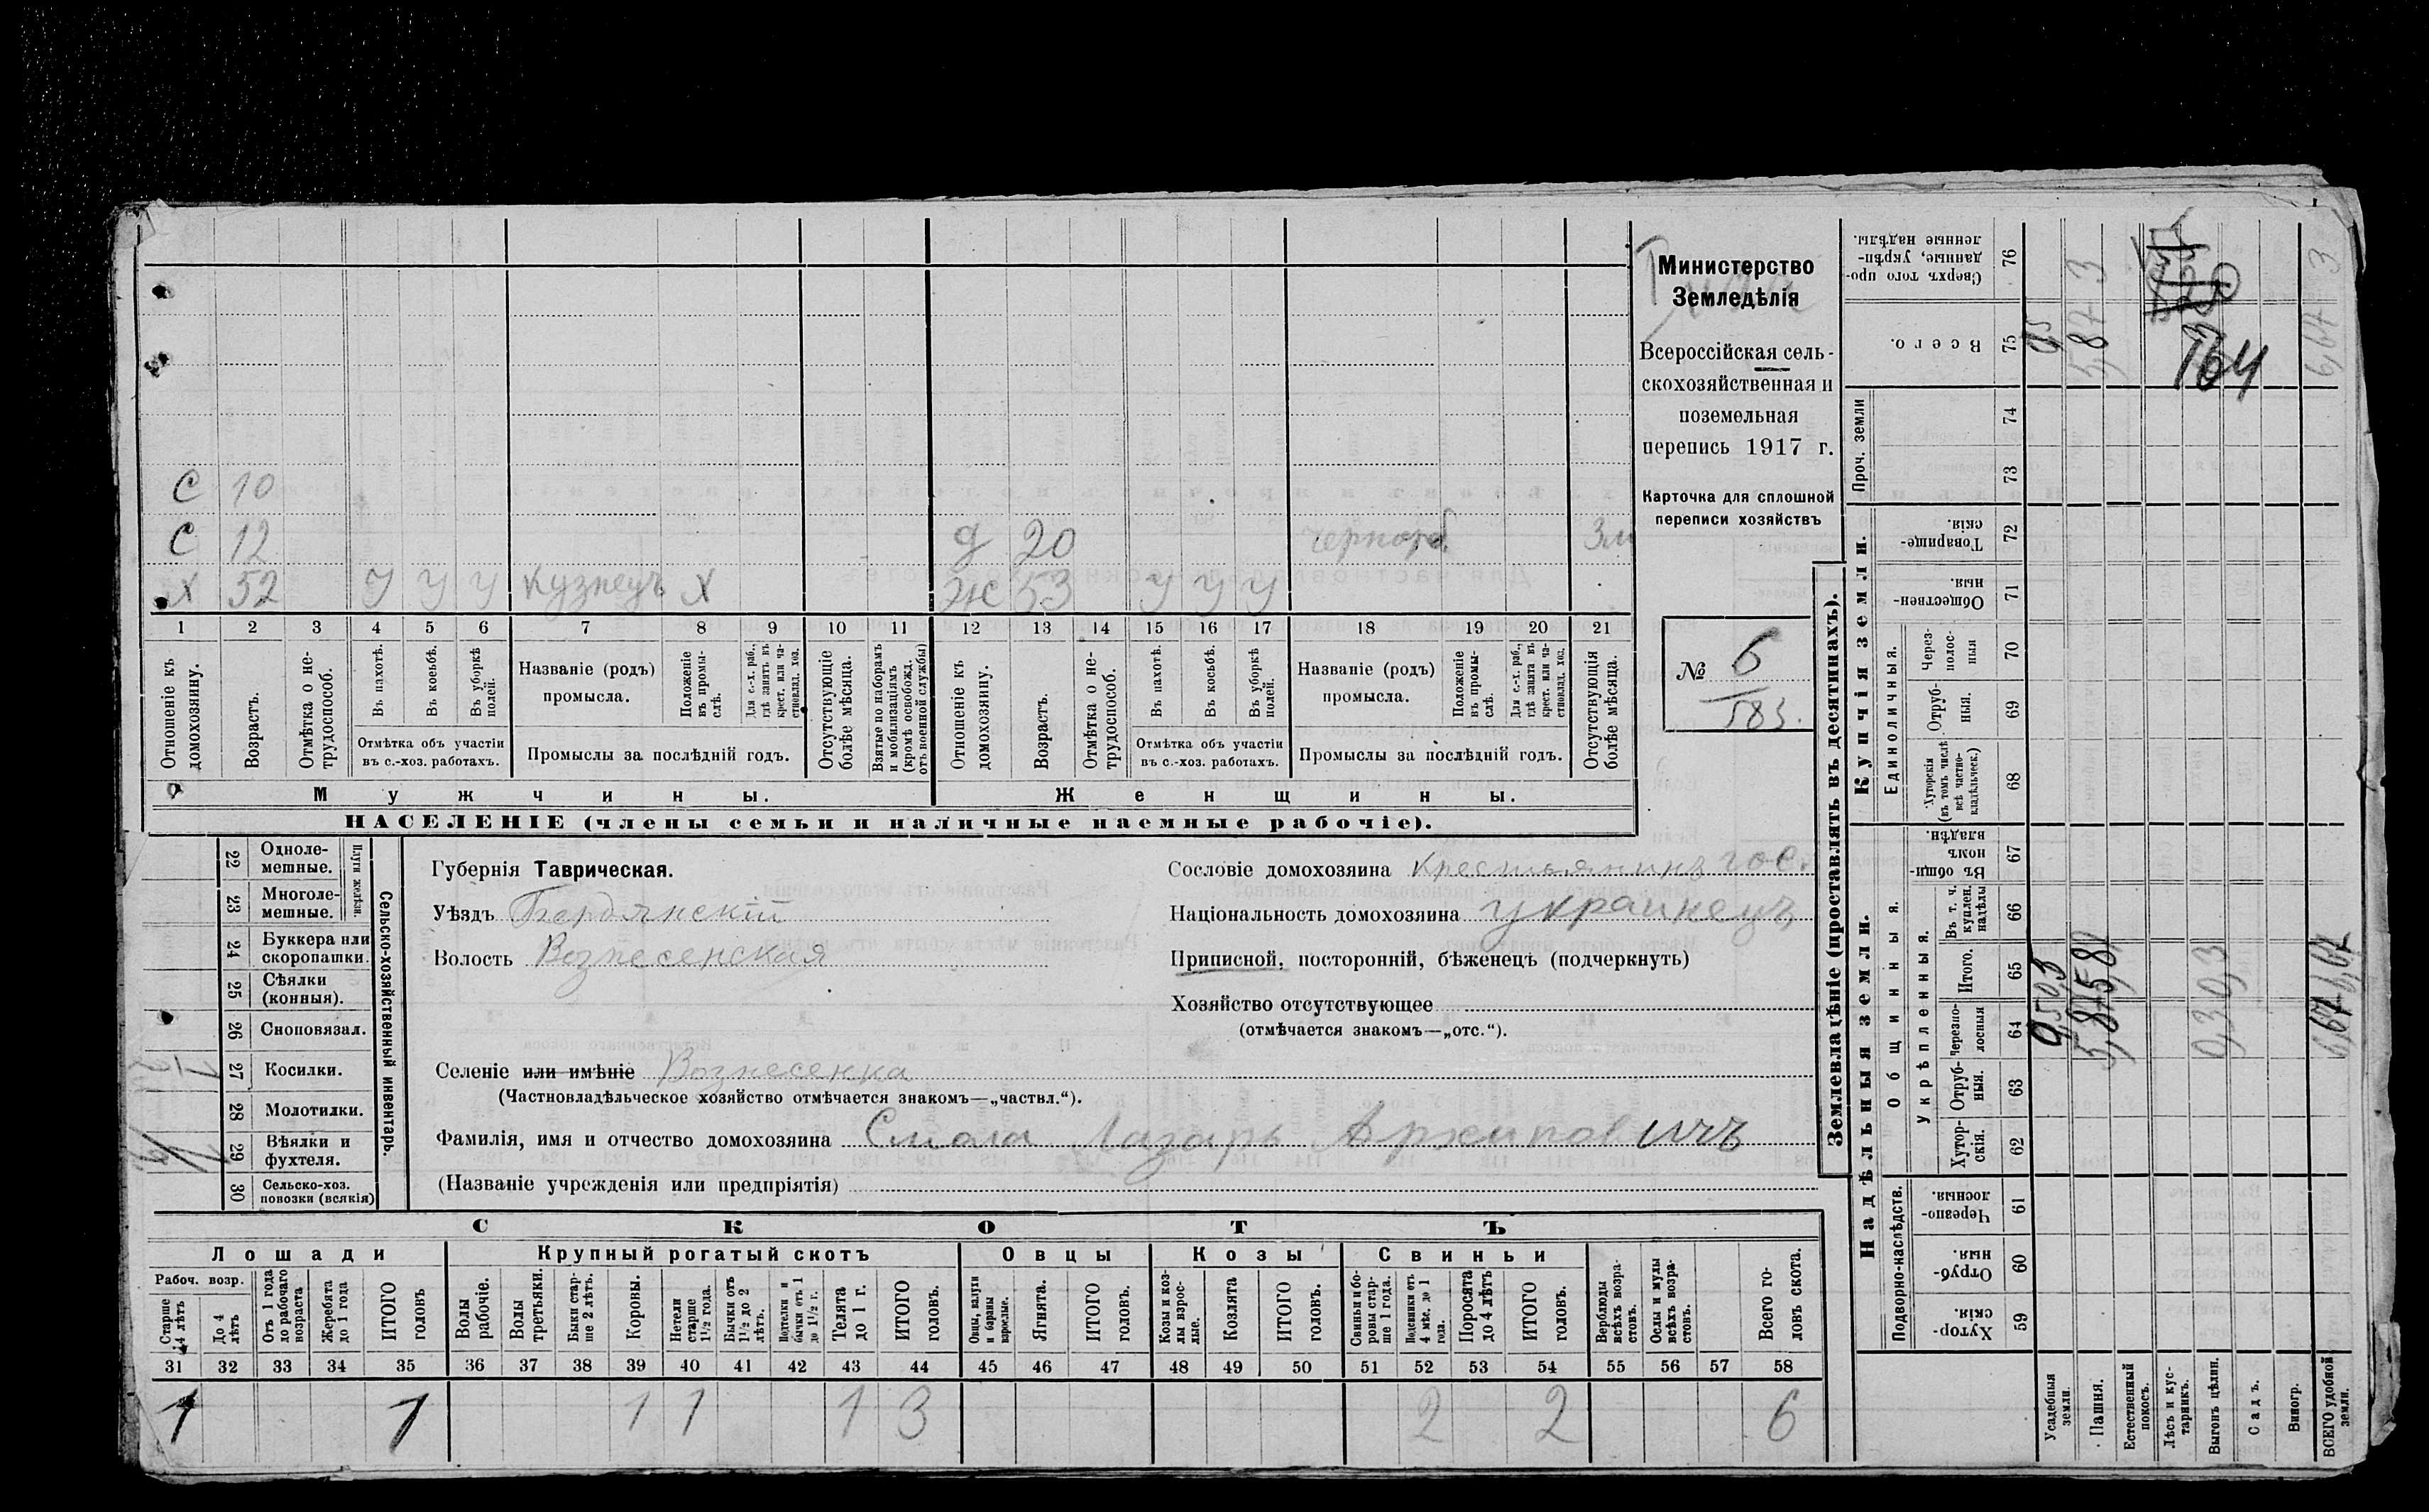 Министерство
Земледѣлія
Всероссійская сель-
скохозяйственная и
поземельная
перепись 1917 г.
Карточка для сплошной
переписи хозяйствъ
№ 6
583.
С 10
С 12 д 20 чернораб. 3м
Х 52 У У У кузнецъ Х Ж 53 У У У
1 2 3 4 5 6 7 8 9 10 11 12 13 14 15 16 17 18 19 20 21
Отношеніе къ домохозяину.
Возрастъ.
Отмѣтка о не-трудоспособ.
Въ пахотѣ.
Въ косьбѣ.
Въ уборкѣ полей.
Отмѣтка объ участіи
въ с.-хоз. работахъ.
Названіе (родъ)
промысла.
Положеніе въ промы-слѣ.
Для с.-х. раб., гдѣ занятъ въ крест. или ча-стновлад. хоз.
Промыслы за послѣдній годъ.
Отсутствующіе болѣе мѣсяца.
Взятые по наборамъ и мобилизаціямъ (кромѣ освобожд. отъ военной службы)
Отношеніе къ домохозяину.
Возрастъ.
Отмѣтка о не-трудоспособ.
Въ пахотѣ.
Въ косьбѣ.
Въ уборкѣ полей.
Отмѣтка объ участіи
въ с.-хоз. работахъ.
Названіе (родъ)
промысла.
Положеніе въ промы-слѣ.
Для с.-х. раб., гдѣ занята въ крест. или ча-стновлад. хоз.
Промыслы за послѣдній годъ.
Отсутствующія болѣе мѣсяца.
Мужчины. Женщины.
НАСЕЛЕНІЕ (члены семьи и наличные наемные рабочіе).
22 Одноле-мешные.
23 Многоле-мешные.
Плуги желѣзн.
24 Буккера или скоропашки.
25 Сѣялки (конныя).
26 Сноповязал.
27 Косилки.
28 Молотилки.
29 Вѣялки и фухтеля.
30 Сельско-хоз. повозки (всякія)
Сельско-хозяйственный инвентарь.
Губернія Таврическая.
Уѣздъ Бердянскій
Волость Вознесенская
Сословіе домохозяина крестьянинъ гос.
Національность домохозяина украинецъ
Приписной, посторонній, бѣженецъ (подчеркнуть)
Хозяйство отсутствующее
(отмѣчается знакомъ—„отс.“).
Селеніе или имѣніе Вознесенка
(Частновладѣльческое хозяйство отмѣчается знакомъ—„частвл.“).
Фамилія, имя и отчество домохозяина Смола Лазарь Архиповичъ
(Названіе учрежденія или предпріятія)
СКОТЪ
Лошади Крупный рогатый скотъ Овцы Козы Свиньи
Рабоч. возр.
Старше 4 лѣтъ
До 4 лѣтъ
Отъ 1 года до рабочаго возраста
Жеребята до 1 года
ИТОГО головъ
Волы рабочіе.
Волы третьяки.
Быки стар-ше 2 лѣтъ.
Коровы.
Нетели старше 1½ года.
Бычки отъ 1½ до 2 лѣтъ.
Подтелки и бычки отъ 1 до 1½ г.
Телята до 1 г.
ИТОГО головъ.
Овцы, валухи и бараны взрослые.
Ягнята.
ИТОГО головъ.
Козы и коз-лы взрос-лые.
Козлята
ИТОГО головъ.
Свиньи и бо-ровы стар-ше 1 года.
Подсвинки отъ 4 мѣс. до 1 года.
Поросята до 4 лѣтъ
ИТОГО головъ.
Верблюды всѣхъ возра-стовъ.
Ослы и мулы всѣхъ возра-стовъ.
Всего го-ловъ скота.
31 32 33 34 35 36 37 38 39 40 41 42 43 44 45 46 47 48 49 50 51 52 53 54 55 56 57 58
1 1 1 1 1 3 2 2 6
Землевладѣніе (проставлять въ десятинахъ).
Надѣльныя земли. Купчія земли.
Подворно-наслѣдств.
Общинныя.
Укрѣпленныя.
Единоличныя.
Проч. земли
59 Хутор-скія
60 Отруб-ныя.
61 Черезпо-лосныя.
62 Хутор-скія.
63 Отруб-ныя.
64 Черезпо-лосныя
65 Итого.
66 Въ т. ч. куплен. надѣлы
67 Въ общи-номъ владѣн.
68 Хуторскія (въ томъ числѣ всѣ частно-владѣльческ.)
69 Отруб-ныя.
70 Через-полос-ныя
71 Обществен-ныя.
72 Товарище-скія.
73
74
75 Всего.
76 Сверхъ того про-данные, укрѣп-ленные надѣлы.
Усадебныя земли.
Пашня. 5,87 5,87 5,87 3
Естественный покосъ.
Лѣсъ и кус-тарникъ.
Выгонъ цѣлин. 0,3 0,3
Садъ.
Виногр.
ВСЕГО удобной земли. 6,67 6,67 6,67 3
764